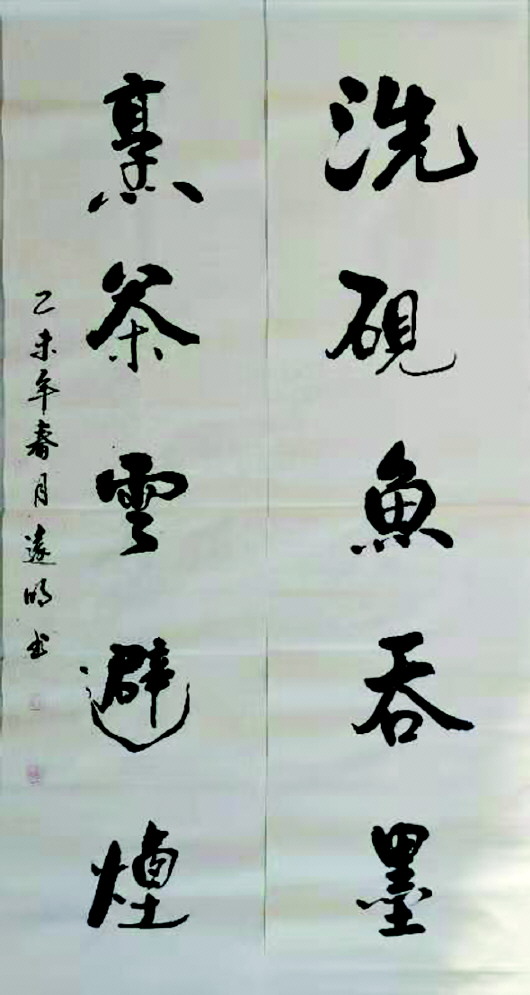 洗硯魚吞墨
烹茶雲避煙
乙未年春月遠明书